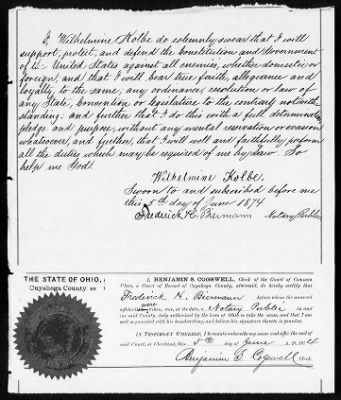 I, Wilhelmine Kolbe do solemnly swear that I will
support, protect, and defend the Constitution and Government
of the United States against all enemies, whether domestic or
foreign; and that I will bear true faith, allegiance and
loyalty, to the same, any ordinance, resolution or law of
any State, Convention or Legislature to the contrary notwith
standing: and further that I do this with a full determination
pledge and purpose, without any mental reservation or evasion
whatsoever, and further, that I will well and faithfully perform
all the duties which may be required of me by law. So
help me God.
Wilhelmine Kolbe.
Sworn to and subscribed before me
this 5th day of June 1874
Frederick H. Biermann Notary Public
THE STATE OF OHIO,
Cuyahoga County. ss
I, BENJAMIN S. COGSWELL, Clerk of the Court of Common
Pleas, a Court of Record of Cuyahoga County, aforesaid, do hereby certify that
Frederick H. Biermann before whom the annexed
were
a Notary Public in and
said County, duly authorized by the laws of Ohio to take the same, and that I am
well acquainted with his handwriting, and believe his signature thereto is genuine.
IN TESTIMONY WHEREOF, I hereunto subscribe my name and affix the seal of
said Court, at Cleveland, this 5th day of June A. D. 1874
Benjamin S. Cogswell Clerk